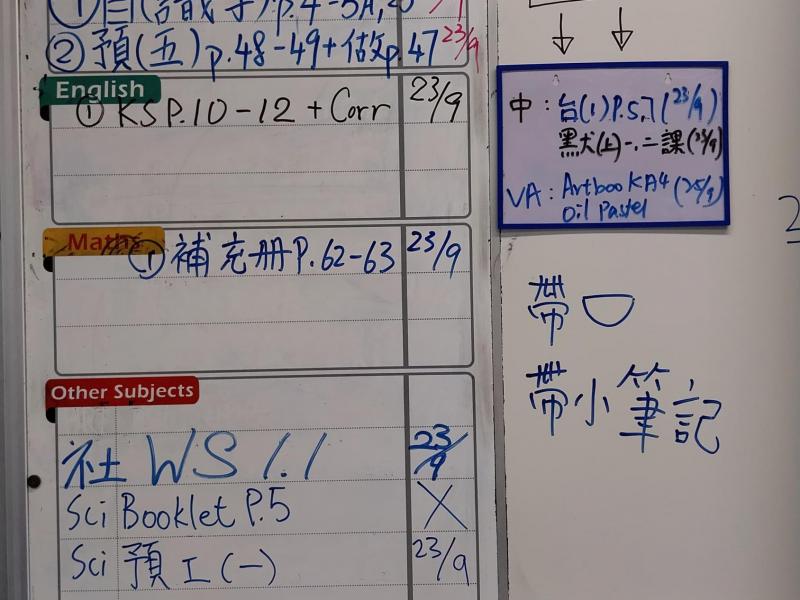 ① 自(識字)p.4-5A,
② 預(五)p.48-49+做p.47 23/9
English
① KS P.10-12 + Corr 23/9
Maths
① 補充册P.62-63 23/9
Other Subjects
社 WS 1.1 23/9
Sci Booklet P.5 X
Sci 預工(一) 23/9
中: 台(1)P.5,7 (23/9)
黑犬(上)一、二課(23/9)
VA: Artbook A4 (25/9)
Oil Pastel
帶
帶小筆記
2